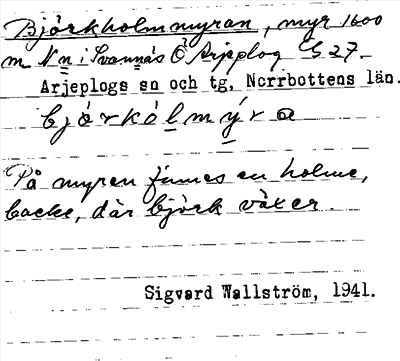 Björkholmmyran, myr 1600
m N n i Svannäs Ö Arjeplog G 27.
Arjeplogs sn och tg, Norrbottens län.
bjö̀rkòlmýra
På myren finnes en holme,
backe, där björk växer.
Sigvard Wallström, 1941.